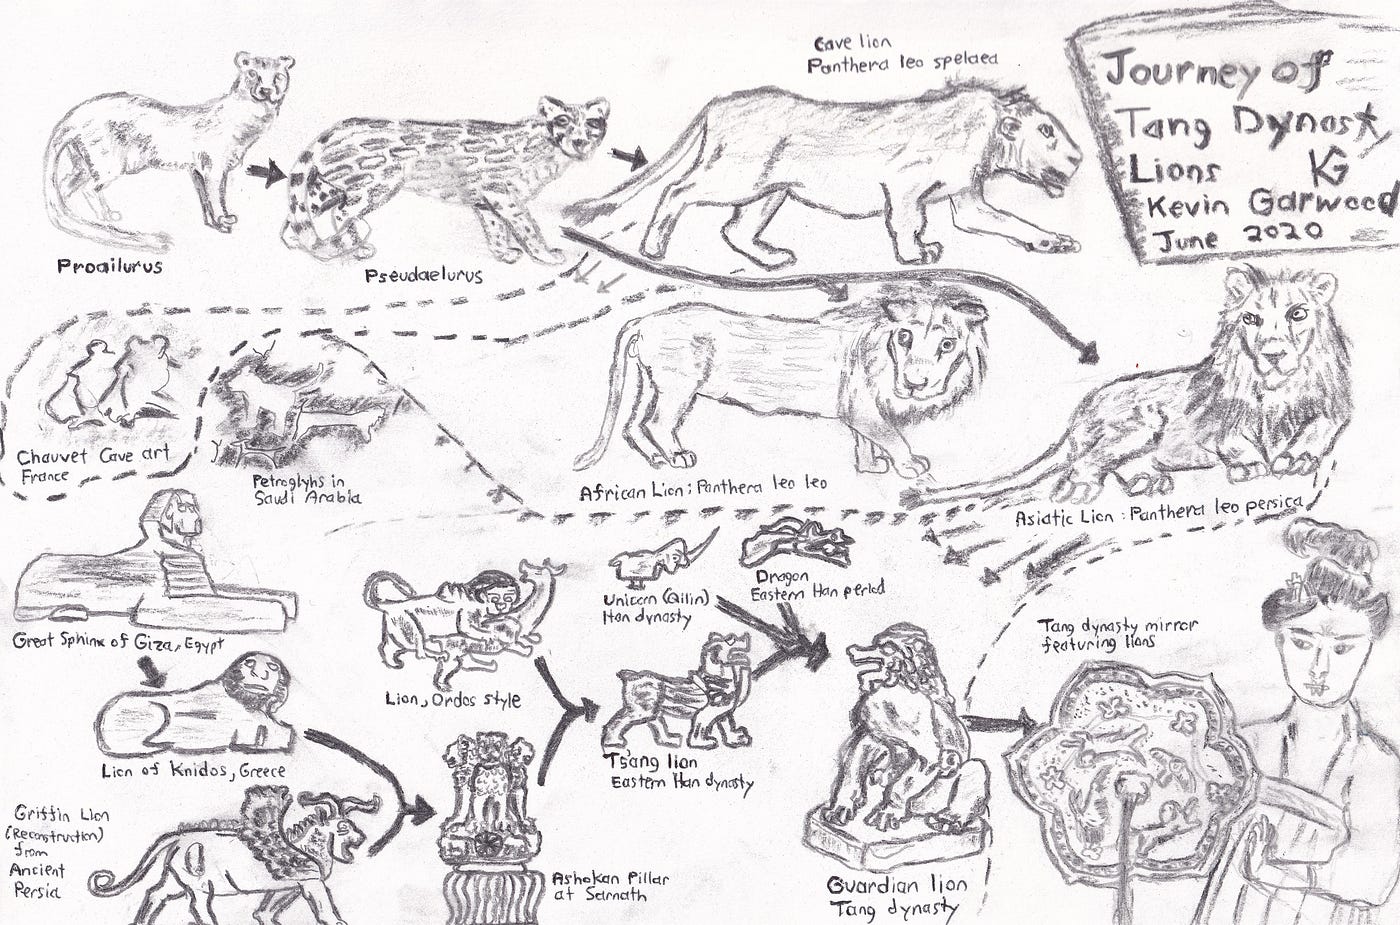 Cave lion
Panthera leo spelaea
Journey of
Tang Dynasty
Lions KG
Kevin Garwood
June 2020
Proailurus
Pseudaelurus
Chauvet Cave art
France
Petroglyhs in
Saudi Arabia
African Lion: Panthera leo leo
Asiatic Lion: Panthera leo persica
Great Sphinx of Giza, Egypt
Lion, Ordos style
Unicorn (Qilin)
Han dynasty
Dragon
Eastern Han period
Tang dynasty mirror
featuring lions
Lion of Knidos, Greece
Ts'ang lion
Eastern Han dynasty
Griffin Lion
(Reconstruction)
from
Ancient
Persia
Ashokan Pillar
at Sarnath
Guardian lion
Tang dynasty